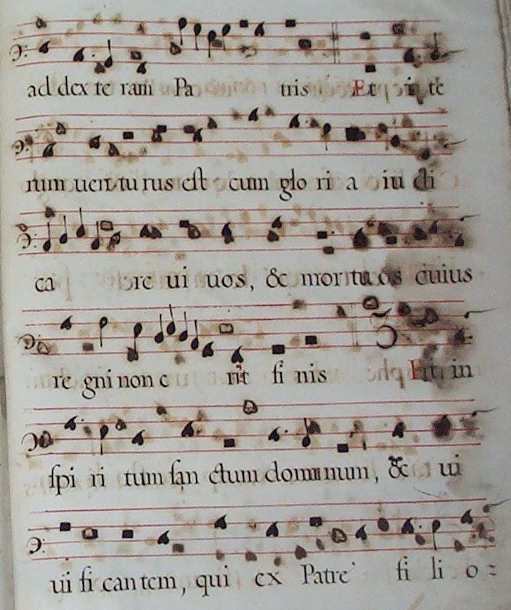 ad dex te ram Pa tris Et in te
rum uen tu rus est cum glo ri a iu di
ca re ui uos, & mor tu os cuius
re gni non e rit fi nis Et in
spi ri tum san ctum dominum, & ui
ui fi can tem, qui ex Patre fi li o